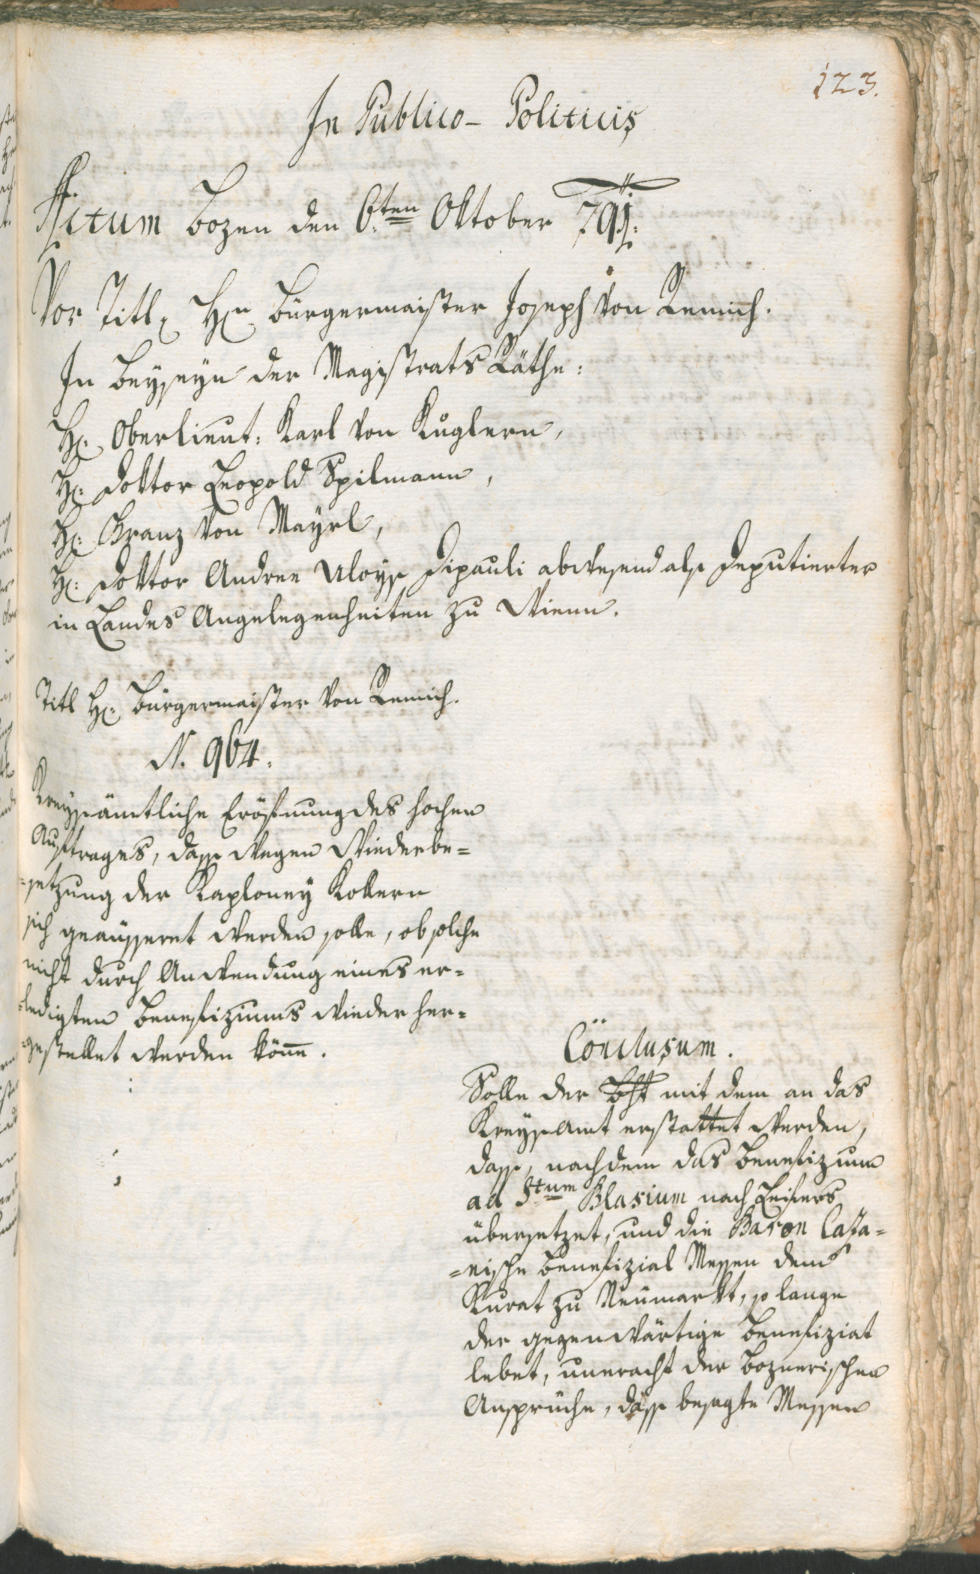 123.
In Publico-Politicis
Actum Bozen den 6.ten Oktober 791.
Vor Titl. Hrn Bürgermaister Joseph von Remich.
In Beyseyn der Magistrats Räthe:
Hr. Oberlieut: Karl von Kuglern,
Hr: Doktor Leopold Spilmann,
Hr: Franz von Mayrl,
Hr: Doktor Andree Aloys Dipauli abwesend als Deputierter
in Landes Angelegenheiten zu Wienn.
Titl Hr: Bürgermaister von Remich.
N. 964.
Kreysämtliche Eröfnung des hohen
Auftrages, dass wegen Wiederbe=
=setzung der Kaploney Kollern
sich geäusseret werden solle, ob solche
nicht durch Anwendung eines er=
=ledigten Benefiziums wieder her=
=gestellet werden könne.
Conclusum.
Solle der Bht mit dem an das
Kreysamt erstattet werden,
dass, nachdem das Benefizium
ad Stum Blasium nach Leifers
übersetzet, und die Baron Caza=
=nische Benefizial Messen dem
Kurat zu Neumarkt, so lange
der gegenwärtige Benefiziat
lebet, uneracht der Boznerischen
Ansprüche, dass besagte Messen